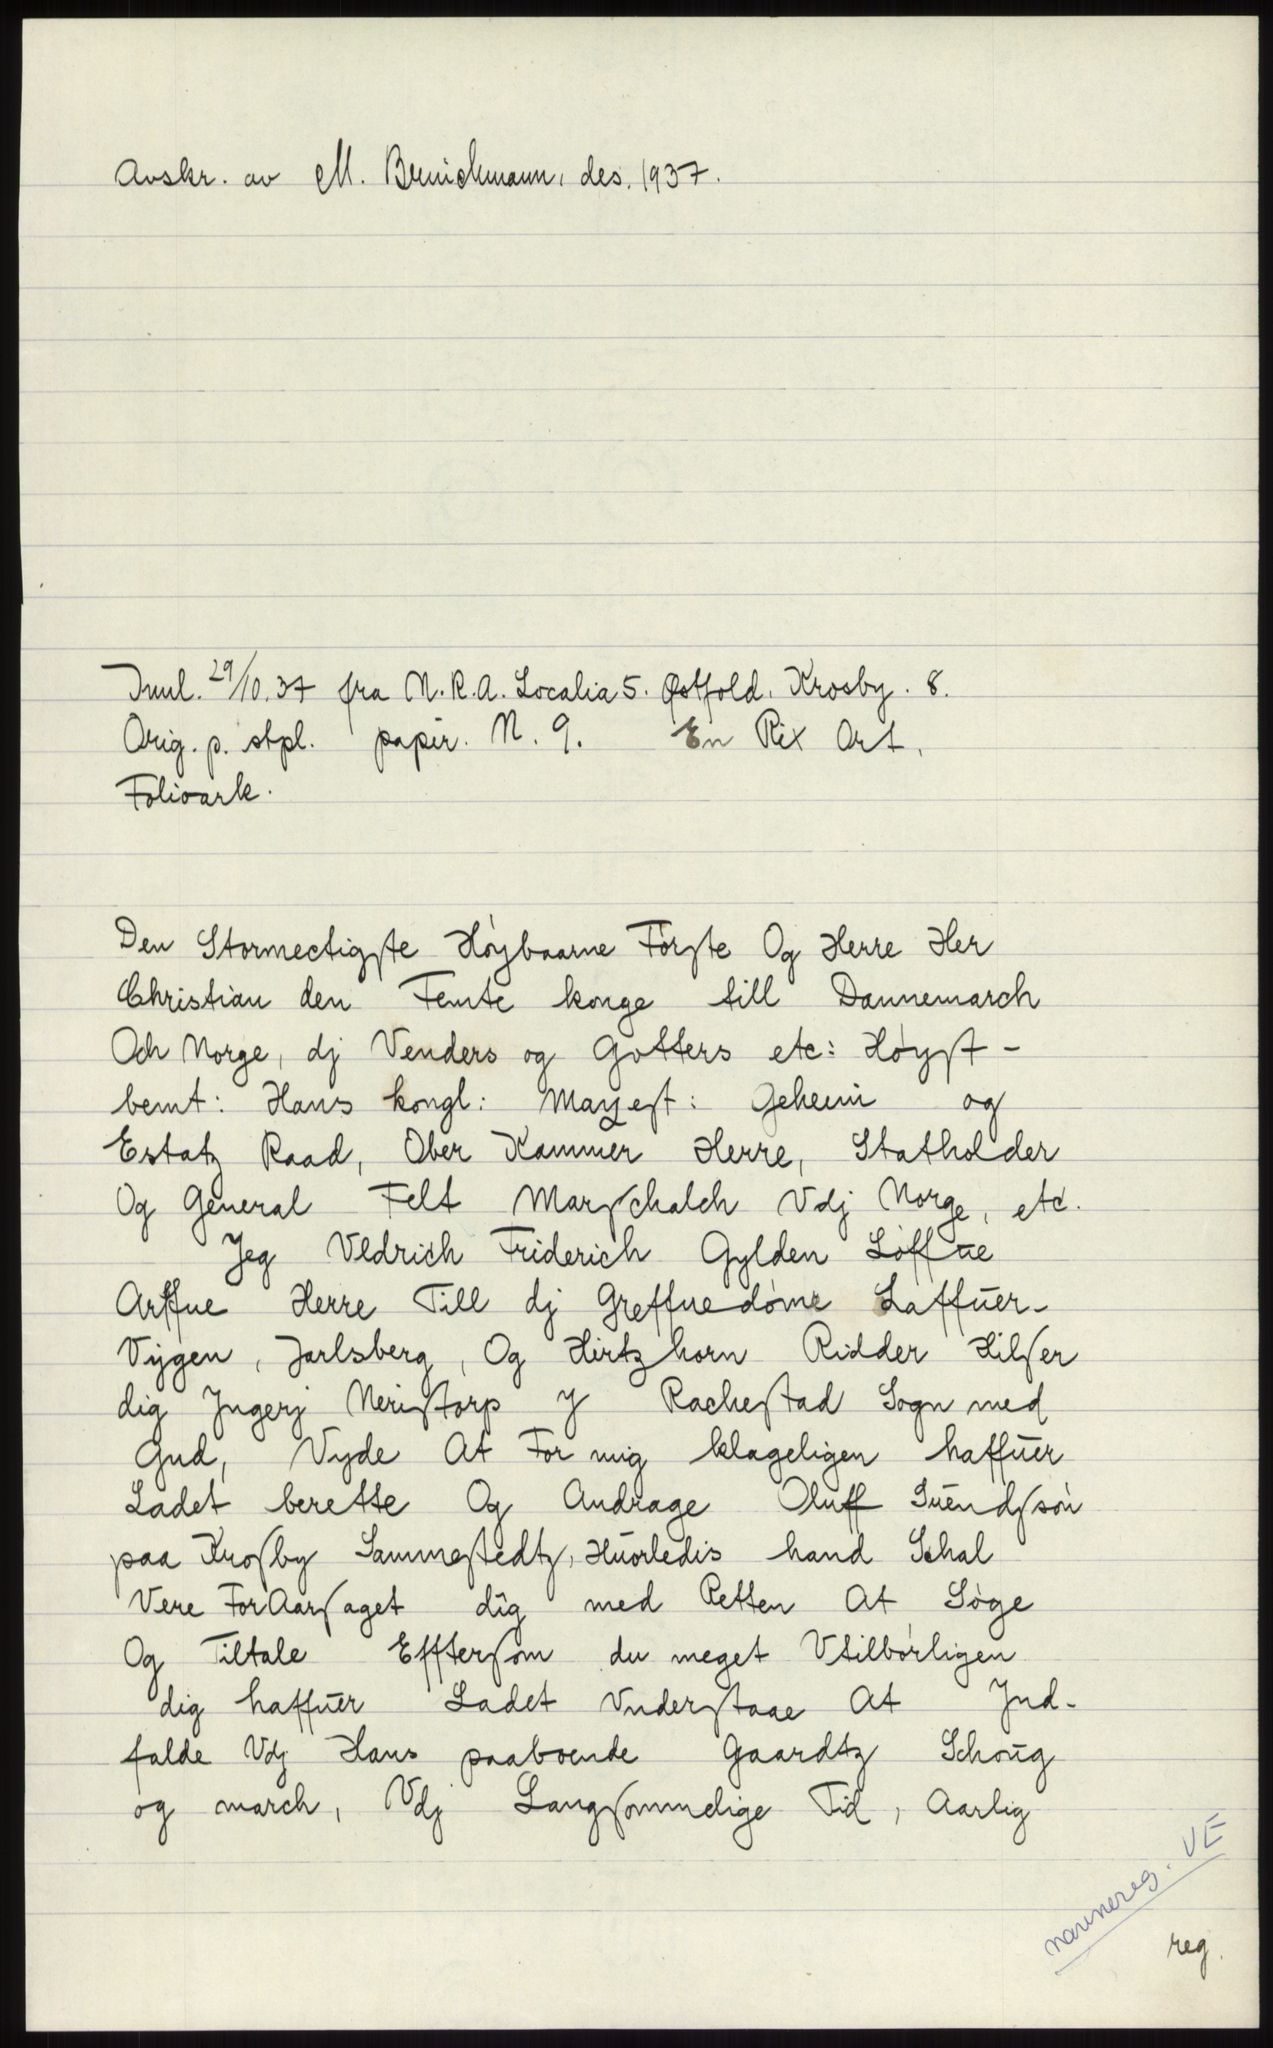 Avskr. av M. Brinichmann, des. 1937.
Innl. 29/10.37 fra N.R.A. Localia 5. Østfold. Krosby. 8.
Orig. p. stpl. papir. N. 9. En Rix Ort.
Folioark.
Den Stormectigste Høybaarne Første Og Herre Her
Christian den Femte konge till Dannemarch
Och Norge, dj Venders og Gotters etc: Høyst-
bemt: Hans kongl: Mayest: Geheim og
Estatz Raad, Ober Kammer Herre, Statholder
Og General Felt Marschalch Vdj Norge, etc.
Jeg Vldrich Friderich Gylden Løffue
Arffue Herre Till dj Greffuedømr Laffuer-
Vijgen, Jarlsberg, Og Hirtzhorn Ridder Hilser
dig Jngerj Neristorp J Rachestad Sogn med
Gud, Vyde At For mig klageligen haffuer
Ladet berette Og Andrage Oluff Suendsøn
paa Krosby Sammestedtz, Huorledis hand Schal
Vere ForAarsaget dig med Retten At Søge
Og Tiltale Effterson du meget Vtilbørligen
dig haffuer Ladet Vnderstaae At Jnd-
falde Vdj Hans paaboende Gaardtz Schoug
og march, Vdj Langsommelige Tid, Aarlig
navnereg. VE
reg.